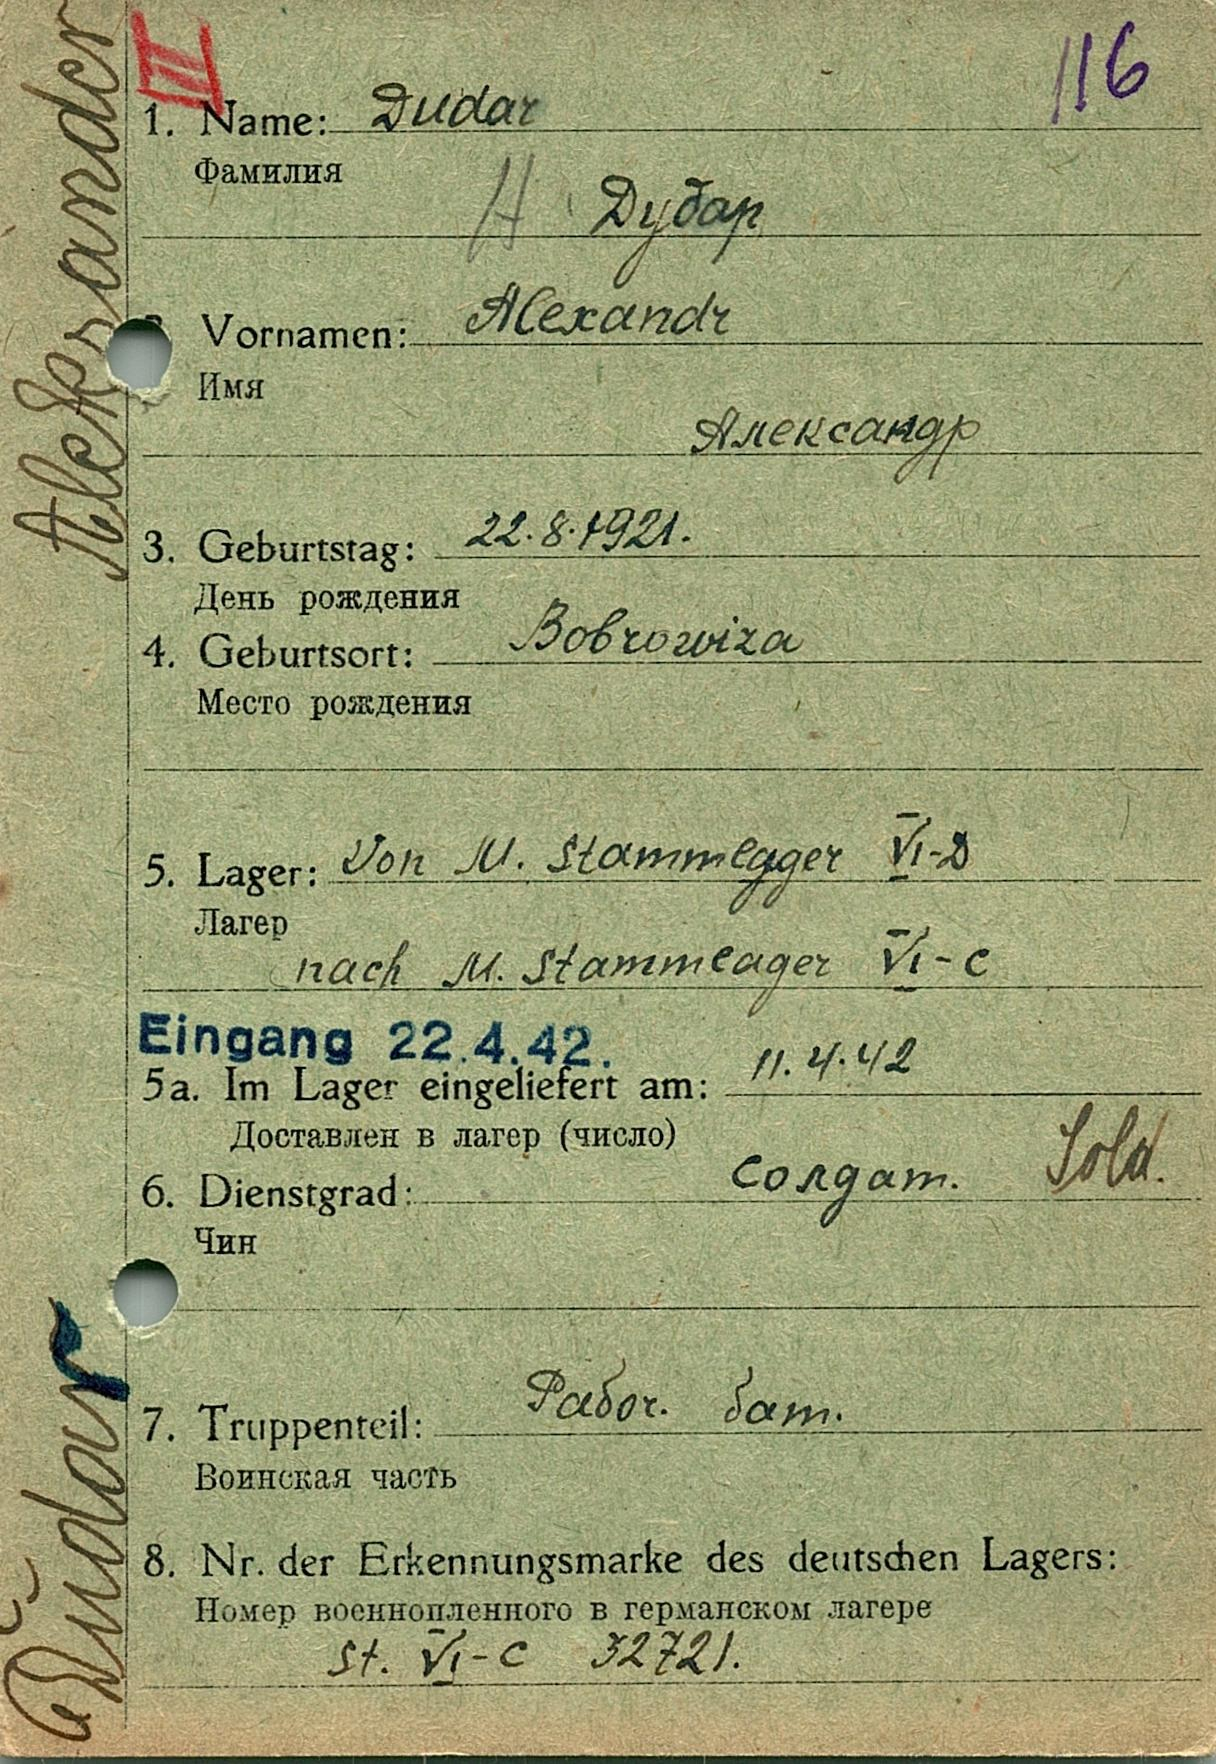 III
116
1. Name: Dudar
Фамилия
H Дубар
2. Vornamen: Alexandr
Имя
Александр
3. Geburtstag: 22.8.1921.
День рождения
4. Geburtsort: Bobrowiza
Место рождения
5. Lager: Von M. Stammlager VI-D
Лагер
nach M. Stammlager VI-C
Eingang 22.4.42.
5a. Im Lager eingeliefert am: 11.4.42
Доставлен в лагер (число)
6. Dienstgrad: солдат. Sold.
Чин
7. Truppenteil: Рабоч. бат.
Воинская часть
8. Nr. der Erkennungsmarke des deutschen Lagers:
Номер военнопленного в германском лагере
St. VI-C 32721.
Dudar Aleksander